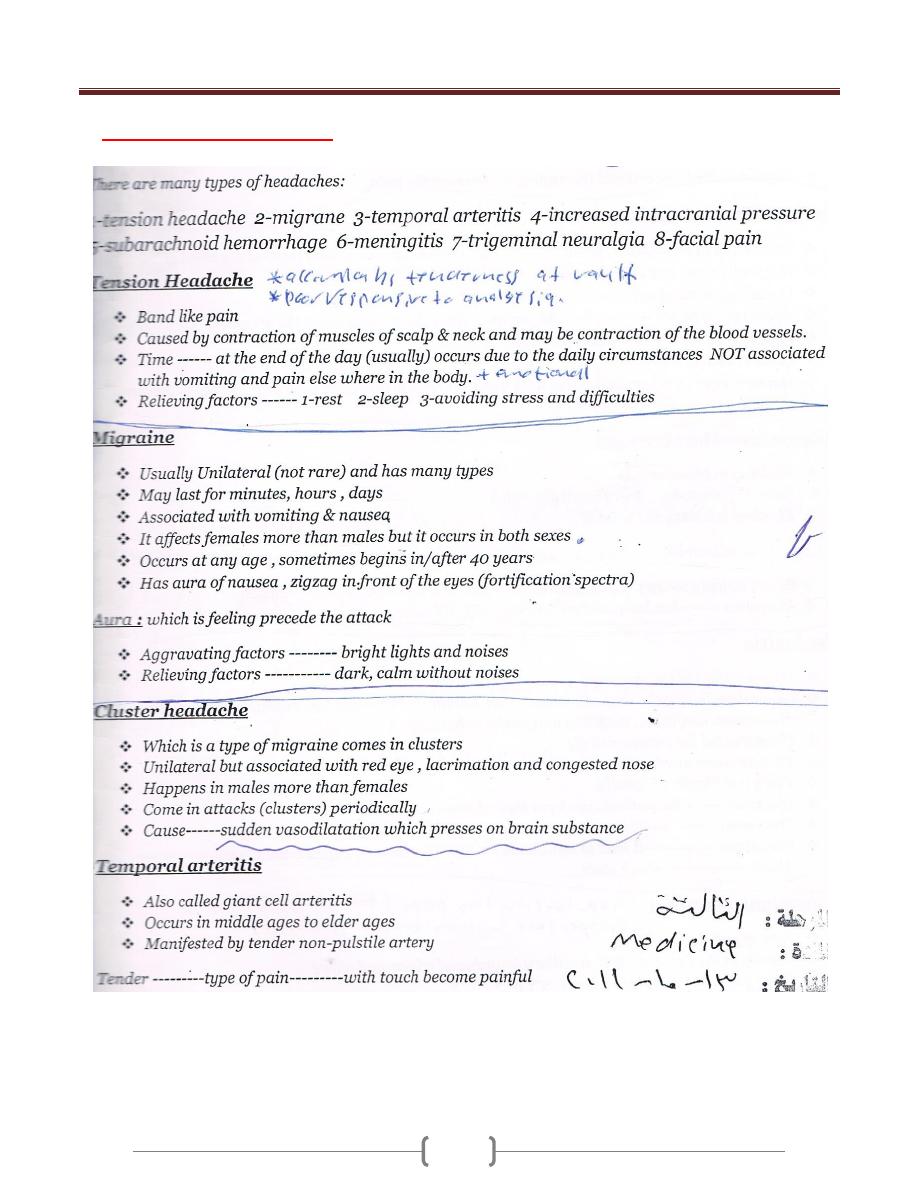 There are many types of headaches:
-tension headache 2-migrane 3-temporal arteritis 4-increased intracranial pressure
5-subarachnoid hemorrhage 6-meningitis 7-trigeminal neuralgia 8-facial pain
Tension Headache * tenderness at vault
* poor responsive to
❖ Band like pain
❖ Caused by contraction of muscles of scalp & neck and may be contraction of the blood vessels.
❖ Time ------ at the end of the day (usually) occurs due to the daily circumstances NOT associated
with vomiting and pain else where in the body. + emotional
❖ Relieving factors ------ 1-rest 2-sleep 3-avoiding stress and difficulties
Migraine
❖ Usually Unilateral (not rare) and has many types
❖ May last for minutes, hours , days
❖ Associated with vomiting & nausea
❖ It affects females more than males but it occurs in both sexes
❖ Occurs at any age , sometimes begins in/after 40 years
❖ Has aura of nausea , zigzag in front of the eyes (fortification spectra)
Aura : which is feeling precede the attack
❖ Aggravating factors -------- bright lights and noises
❖ Relieving factors ----------- dark, calm without noises
Cluster headache
❖ Which is a type of migraine comes in clusters
❖ Unilateral but associated with red eye , lacrimation and congested nose
❖ Happens in males more than females
❖ Come in attacks (clusters) periodically
❖ Cause------sudden vasodilatation which presses on brain substance
Temporal arteritis
❖ Also called giant cell arteritis
❖ Occurs in middle ages to elder ages
❖ Manifested by tender non-pulstile artery
الثالثة
Medicine
Tender ---------type of pain---------with touch become painful
التاريخ : ١٣-١٠-٢٠١١